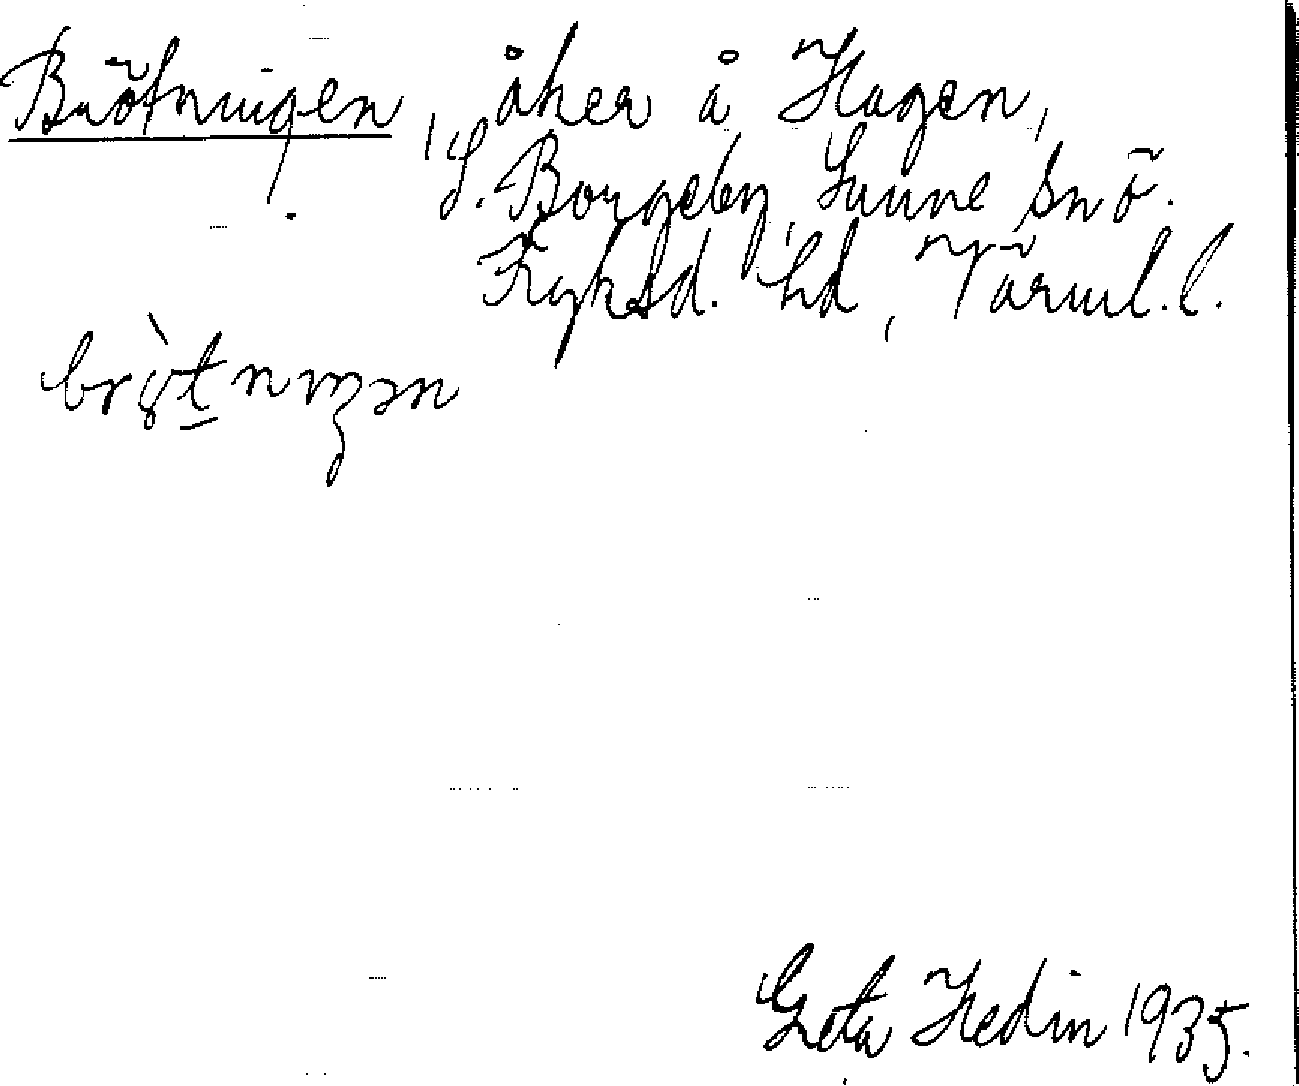 Brötningen, åker å Hagen,
S. Borgeby, Sunne sn ö.
Fryksd. hd, Värml. l.
Greta Hedin 1935.